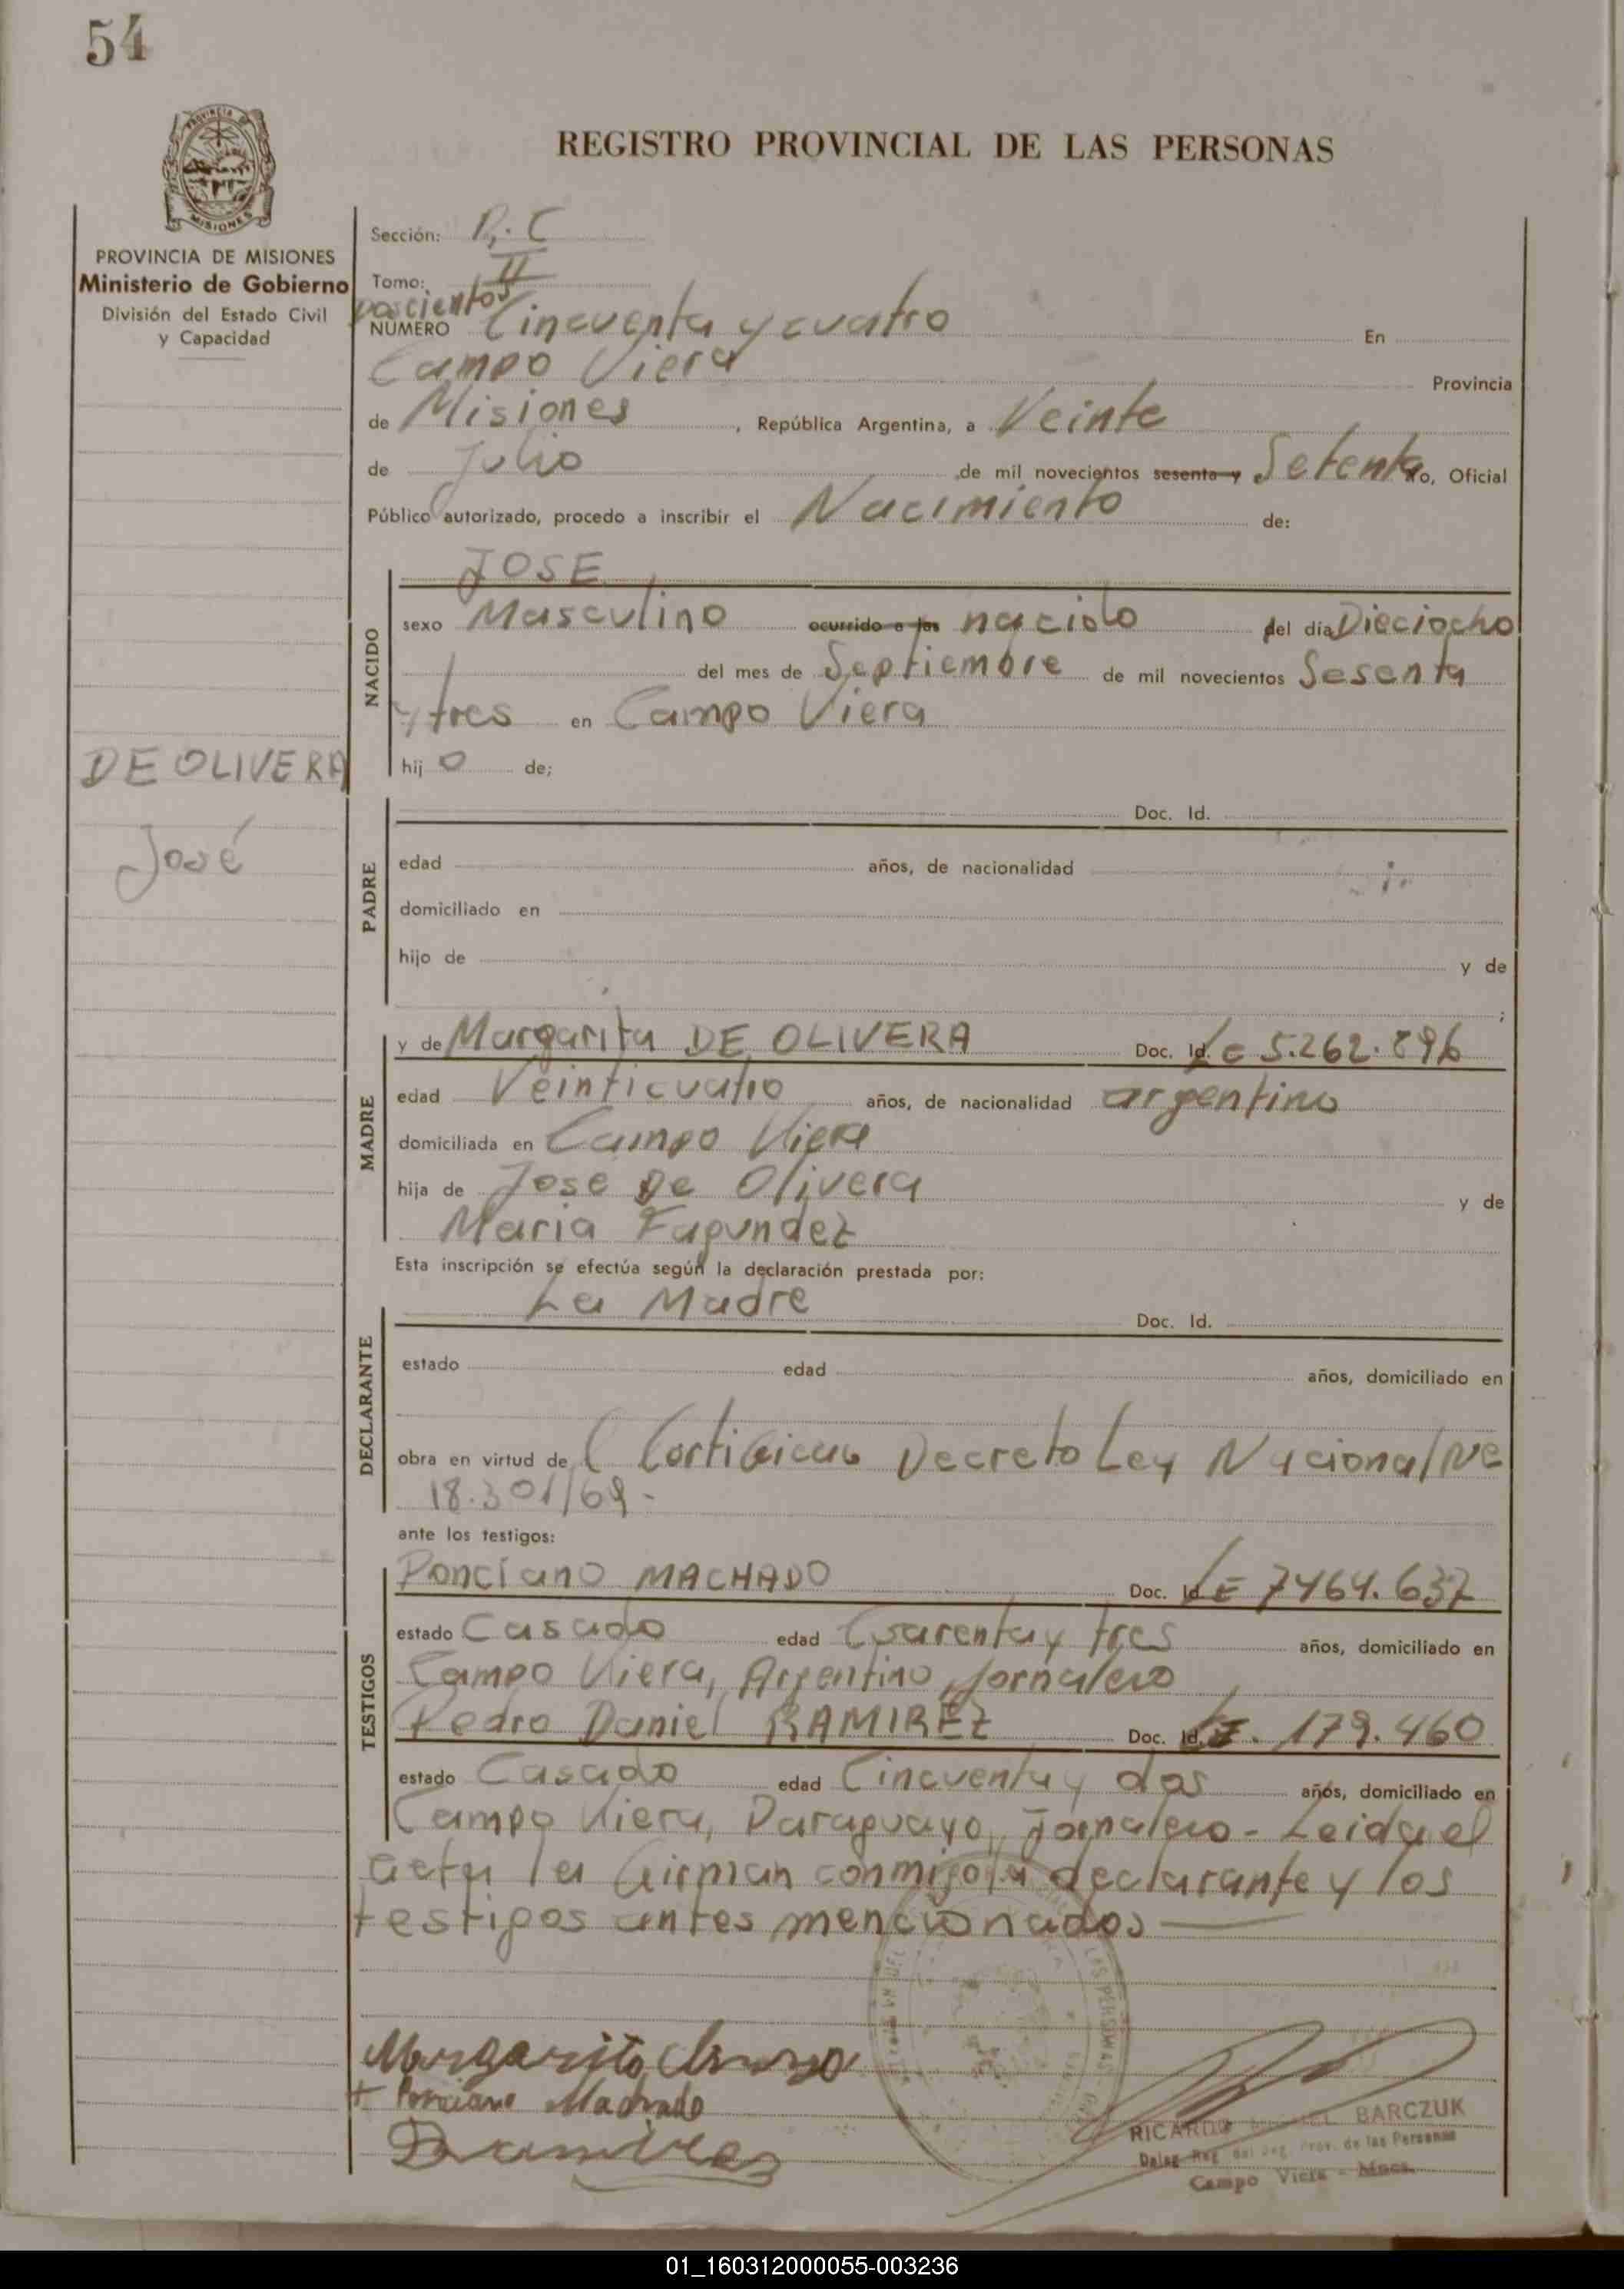 54
PROVINCIA DE MISIONES
MISIONES
PROVINCIA DE MISIONES
Ministerio de Gobierno
División del Estado Civil
y Capacidad
DE OLIVERA
José
REGISTRO PROVINCIAL DE LAS PERSONAS
Sección:
Tomo: II
Doscientos
NUMERO Cincuenta y cuatro En
Campo Viera Provincia
de Misiones, República Argentina, a Veinte
de Julio de mil novecientos sesenta y Setenta yo, Oficial
Público autorizado, procedo a inscribir el Nacimiento de:
NACIDO
JOSE
sexo Masculino ocurrido a las nacido del día Dieciocho
del mes de Septiembre de mil novecientos Sesenta
y tres en Campo Viera
hijo de;
PADRE
Doc. Id.
edad años, de nacionalidad
domiciliado en
hijo de y de
;
MADRE
y de Margarita DE OLIVERA Doc. Id. LC 5.262.896
edad Veinticuatro años, de nacionalidad argentina
domiciliada en Campo Viera
hija de José De Olivera y de
Maria Fagundez
Esta inscripción se efectúa según la declaración prestada por:
DECLARANTE
La Madre Doc. Id.
estado edad años, domiciliado en
obra en virtud de Decreto Ley Nacional Nº
18.301/69-
ante los testigos:
TESTIGOS
Ponciano MACHADO Doc. Id. LE 7464.637
estado Casado edad Cuarenta y tres años, domiciliado en
Campo Viera, Argentino, Jornalero
Pedro Daniel RAMIREZ Doc. Id. 179.460
estado Casado edad Cincuenta y dos años, domiciliado en
Campo Viera, Paraguayo, Jornalero - Leida el
acta la firman conmigo la declarante y los
testigos antes mencionados
Margarita
+ Ponciano Machado
Ramirez
RICARDO BARCZUK
Deleg. Reg. del Reg. Prov. de las Personas
Campo Viera - Mnes.
01_160312000055-003236